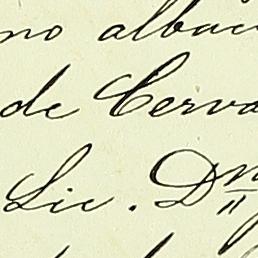 no albac
de Cerva
Lic. Dn